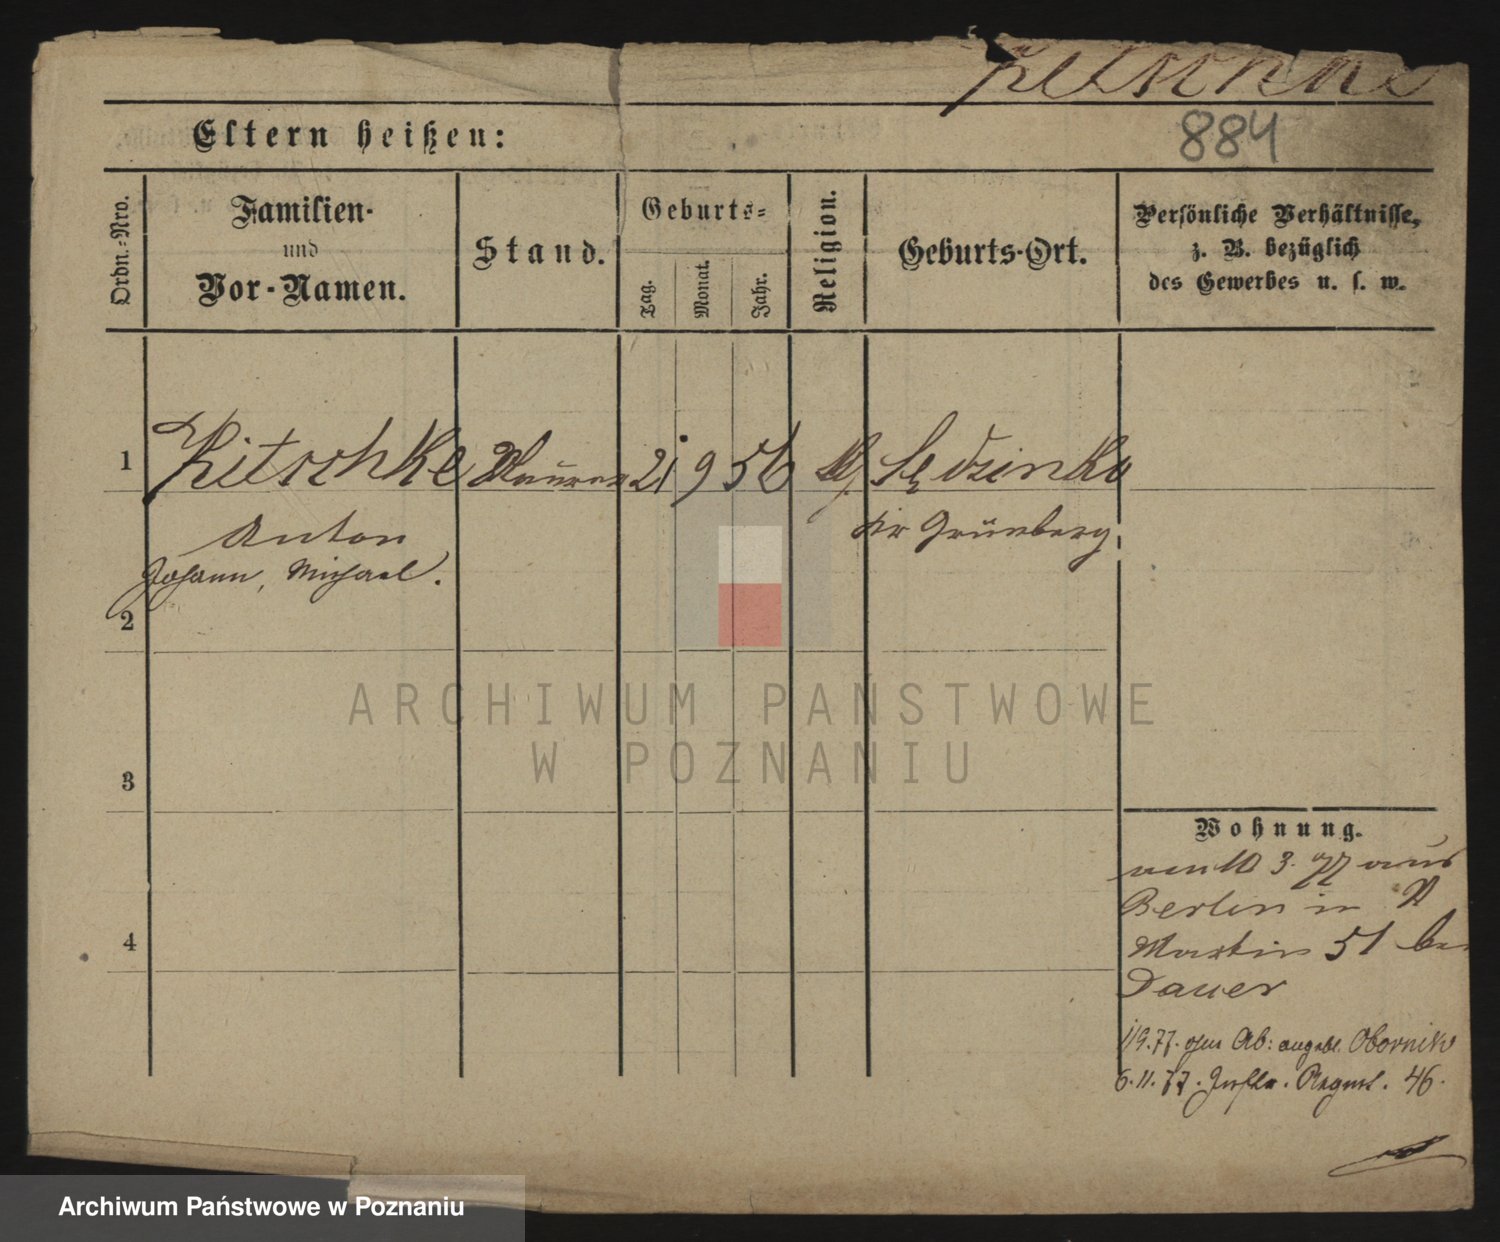 Kitschke
884
Eltern heißen:
Ordn.-Nro.
Familien-
und
Vor-Namen.
Stand.
Geburts-
Tag.
Monat.
Jahr.
Religion.
Geburts-Ort.
Persönliche Verhältnisse,
z. B. bezüglich
des Gewerbes u. s. w.
1 Kitschke Maurer 21 9 56
Anton
Johann, Michael.
Kr Grünberg.
2
3
4
Wohnung.
10 3. 77 aus
Berlin in
Martin 51
Dauer
Obornik
6. 11. 77. 46.
ARCHIWUM PAŃSTWOWE
W POZNANIU
Archiwum Państwowe w Poznaniu